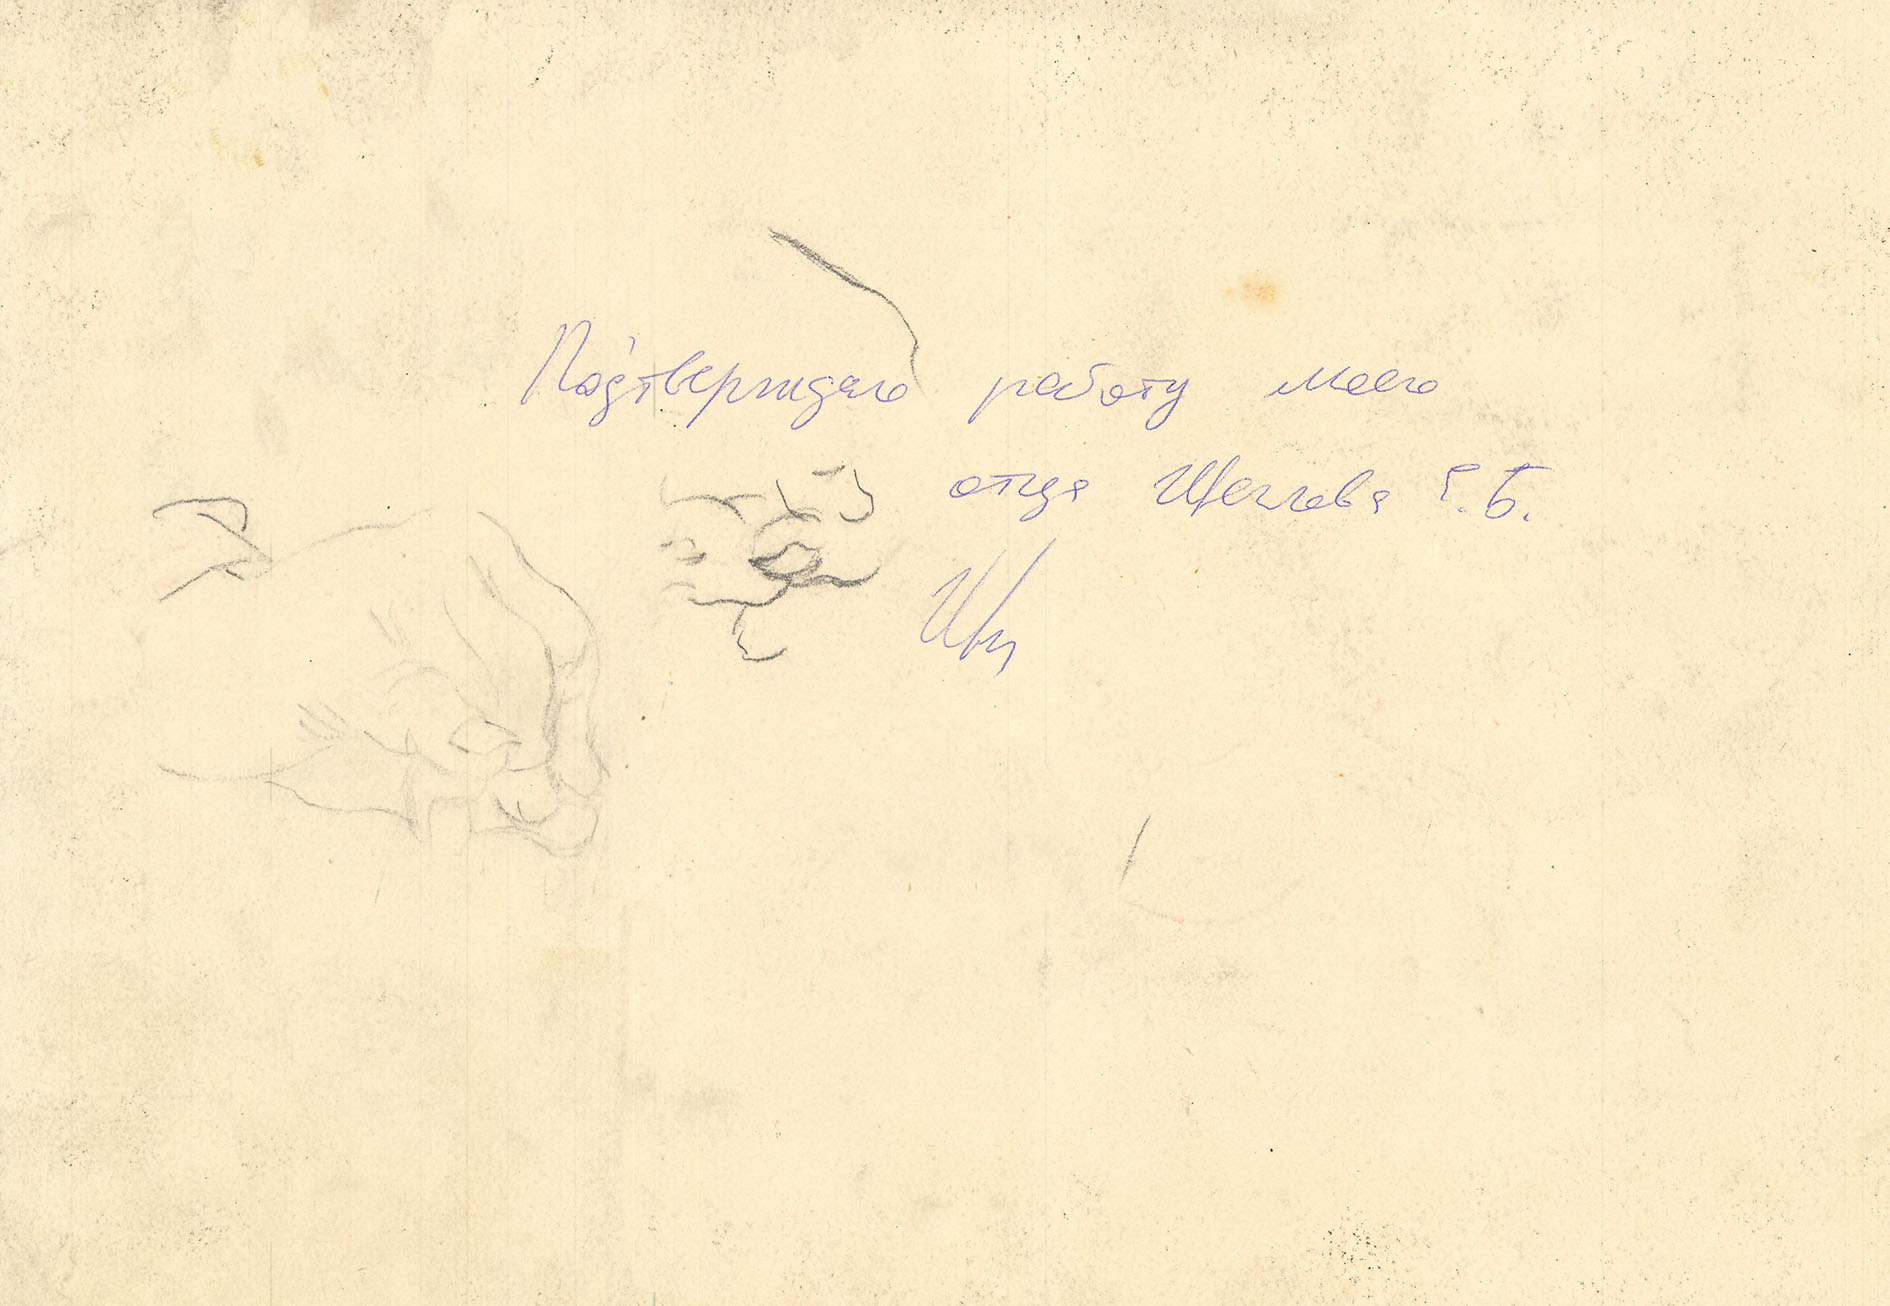 Подтверждаю работу моего
отца Щеглова Е.Б.